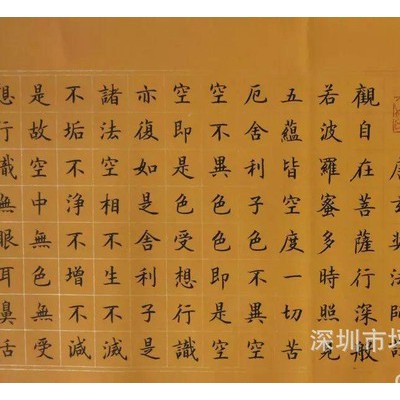 唐玄奘法師
觀自在菩薩行深般
若波羅蜜多時照見
五蘊皆空度一切苦
厄舍利子色不異空
空不異色色即是空
空即是色受想行識
亦復如是舍利子是
諸法空相不生不滅
不垢不淨不增不減
是故空中無色無受
想行識無眼耳鼻舌
深圳市